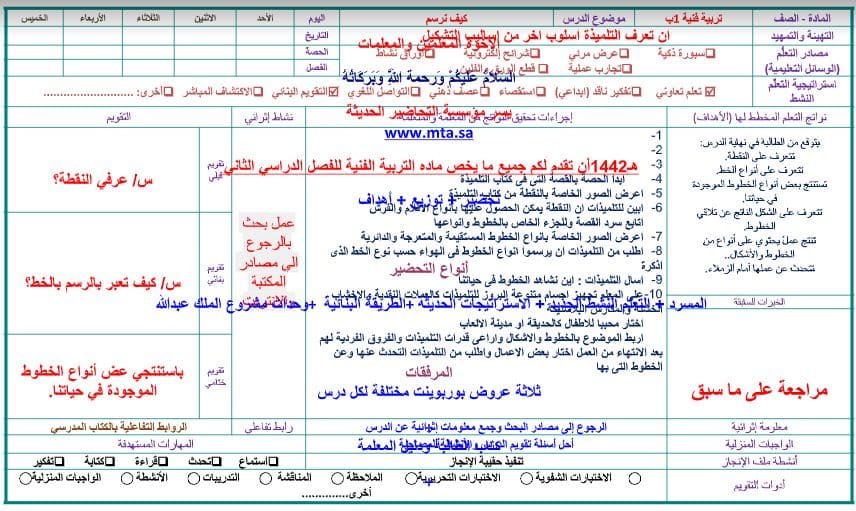 المادة - الصف
تربية فنية 1ب
موضوع الدرس
كيف نرسم
اليوم
الأحد
الاثنين
الثلاثاء
الأربعاء
الخميس
التهيئة والتمهيد
ان تعرف التلميذة اسلوب اخر من اساليب التشكيل
الإخوة المعلمين والمعلمات
التاريخ
مصادر التعلم
(الوسائل التعليمية)
سبورة ذكية
عرض مرئي
شرائح إلكترونية
أوراق نشاط
الحصة
تجارب عملية
قطع الورق والفلين
الفصل
السَّلامُ عَلَيكُمْ وَرَحمة اللهِ وَبَرَكَاتُهُ
استراتيجية التعلم
النشط
تعلم تعاوني
تفكير ناقد (ابداعي)
استقصاء
عصف ذهني
التواصل اللغوي
التقويم البنائي
الاكتشاف المباشر
أخرى: ......................
نواتج التعلم المخطط لها (الأهداف)
إجراءات تحقيق النواتج
نشاط إثرائي
التقويم
يسر مؤسسة التحاضير الحديثة
www.mta.sa
يتوقع من الطالبة في نهاية الدرس:
تتعرف على النقطة.
تتعرف على أنواع الخط.
تستنتج بعض أنواع الخطوط الموجودة
في حياتنا.
تتعرف على الشكل الناتج عن تلاقي
الخطوط.
تنتج عملً يحتوي على أنواع من
الخطوط والأشكال..
تتحدث عن عملها أمام الزملاء.
1-
2-
3-
هـ1442أن تقدم لكم جميع ما يخص ماده التربية الفنية للفصل الدراسي الثاني
4- ابدا الحصة بالقصة التى فى كتاب التلميذة
5- اعرض الصور الخاصة بالنقطة من كتاب التلميذة
تحضير + توزيع + أهداف
6- ابين للتلميذات ان النقطة يمكن الحصول عليها بأنواع الاقلام والفرش
اتابع سرد القصة وللجزء الخاص بالخطوط وانواعها
7- اعرض الصور الخاصة بانواع الخطوط المستقيمة والمتعرجة والدائرية
8- اطلب من التلميذات ان يرسموا انواع الخطوط فى الهواء حسب نوع الخط الذى
اذكرة
أنواع التحضير
9- اسال التلميذات : اين نشاهد الخطوط فى حياتنا
10- على المعلم تجهيز اجسام متنوعة البروز للتلميذات كالعملات النقدية والاخشاب
المسرد + التعلم النشط الحديث + الاستراتيجات الحديثة +الطريقة البنائية +وحدات مشروع الملك عبدالله
اختار محببا للاطفال كالحديقة او مدينة الالعاب
اربط الموضوع بالخطوط والاشكال واراعى قدرات التلميذات والفروق الفردية لهم
بعد الانتهاء من العمل اختار بعض الاعمال واطلب من التلميذات التحدث عنها وعن
الخطوط التى بها
المرفقات
ثلاثة عروض بوربوينت مختلفة لكل درس
عمل بحث
بالرجوع
الى مصادر
المكتبة
تقويم
قبلي
س/ عرفي النقطة؟
تقويم
بنائي
س/ كيف تعبر بالرسم بالخط؟
تقويم
ختامي
باستنتجي عض أنواع الخطوط
الموجودة في حياتنا.
الخبرات السابقة
مراجعة على ما سبق
معلومة إثرائية
الرجوع إلى مصادر البحث وجمع معلومات إثرائية عن الدرس
رابط تفاعلي
الروابط التفاعلية بالكتاب المدرسي
الواجبات المنزلية
أحل أسئلة تقويم الدرس
كتاب الطالبة ودليل المعلمة
المهارات المستهدفة
أنشطة ملف الإنجاز
تنفيذ حقيبة الإنجاز
استماع
تحدث
قراءة
كتابة
تفكير
أدوات التقويم
الاختبارات الشفوية
الاختبارات التحريرية
الملاحظة
المناقشة
التدريبات
الأنشطة
الواجبات المنزلية
أخرى...............